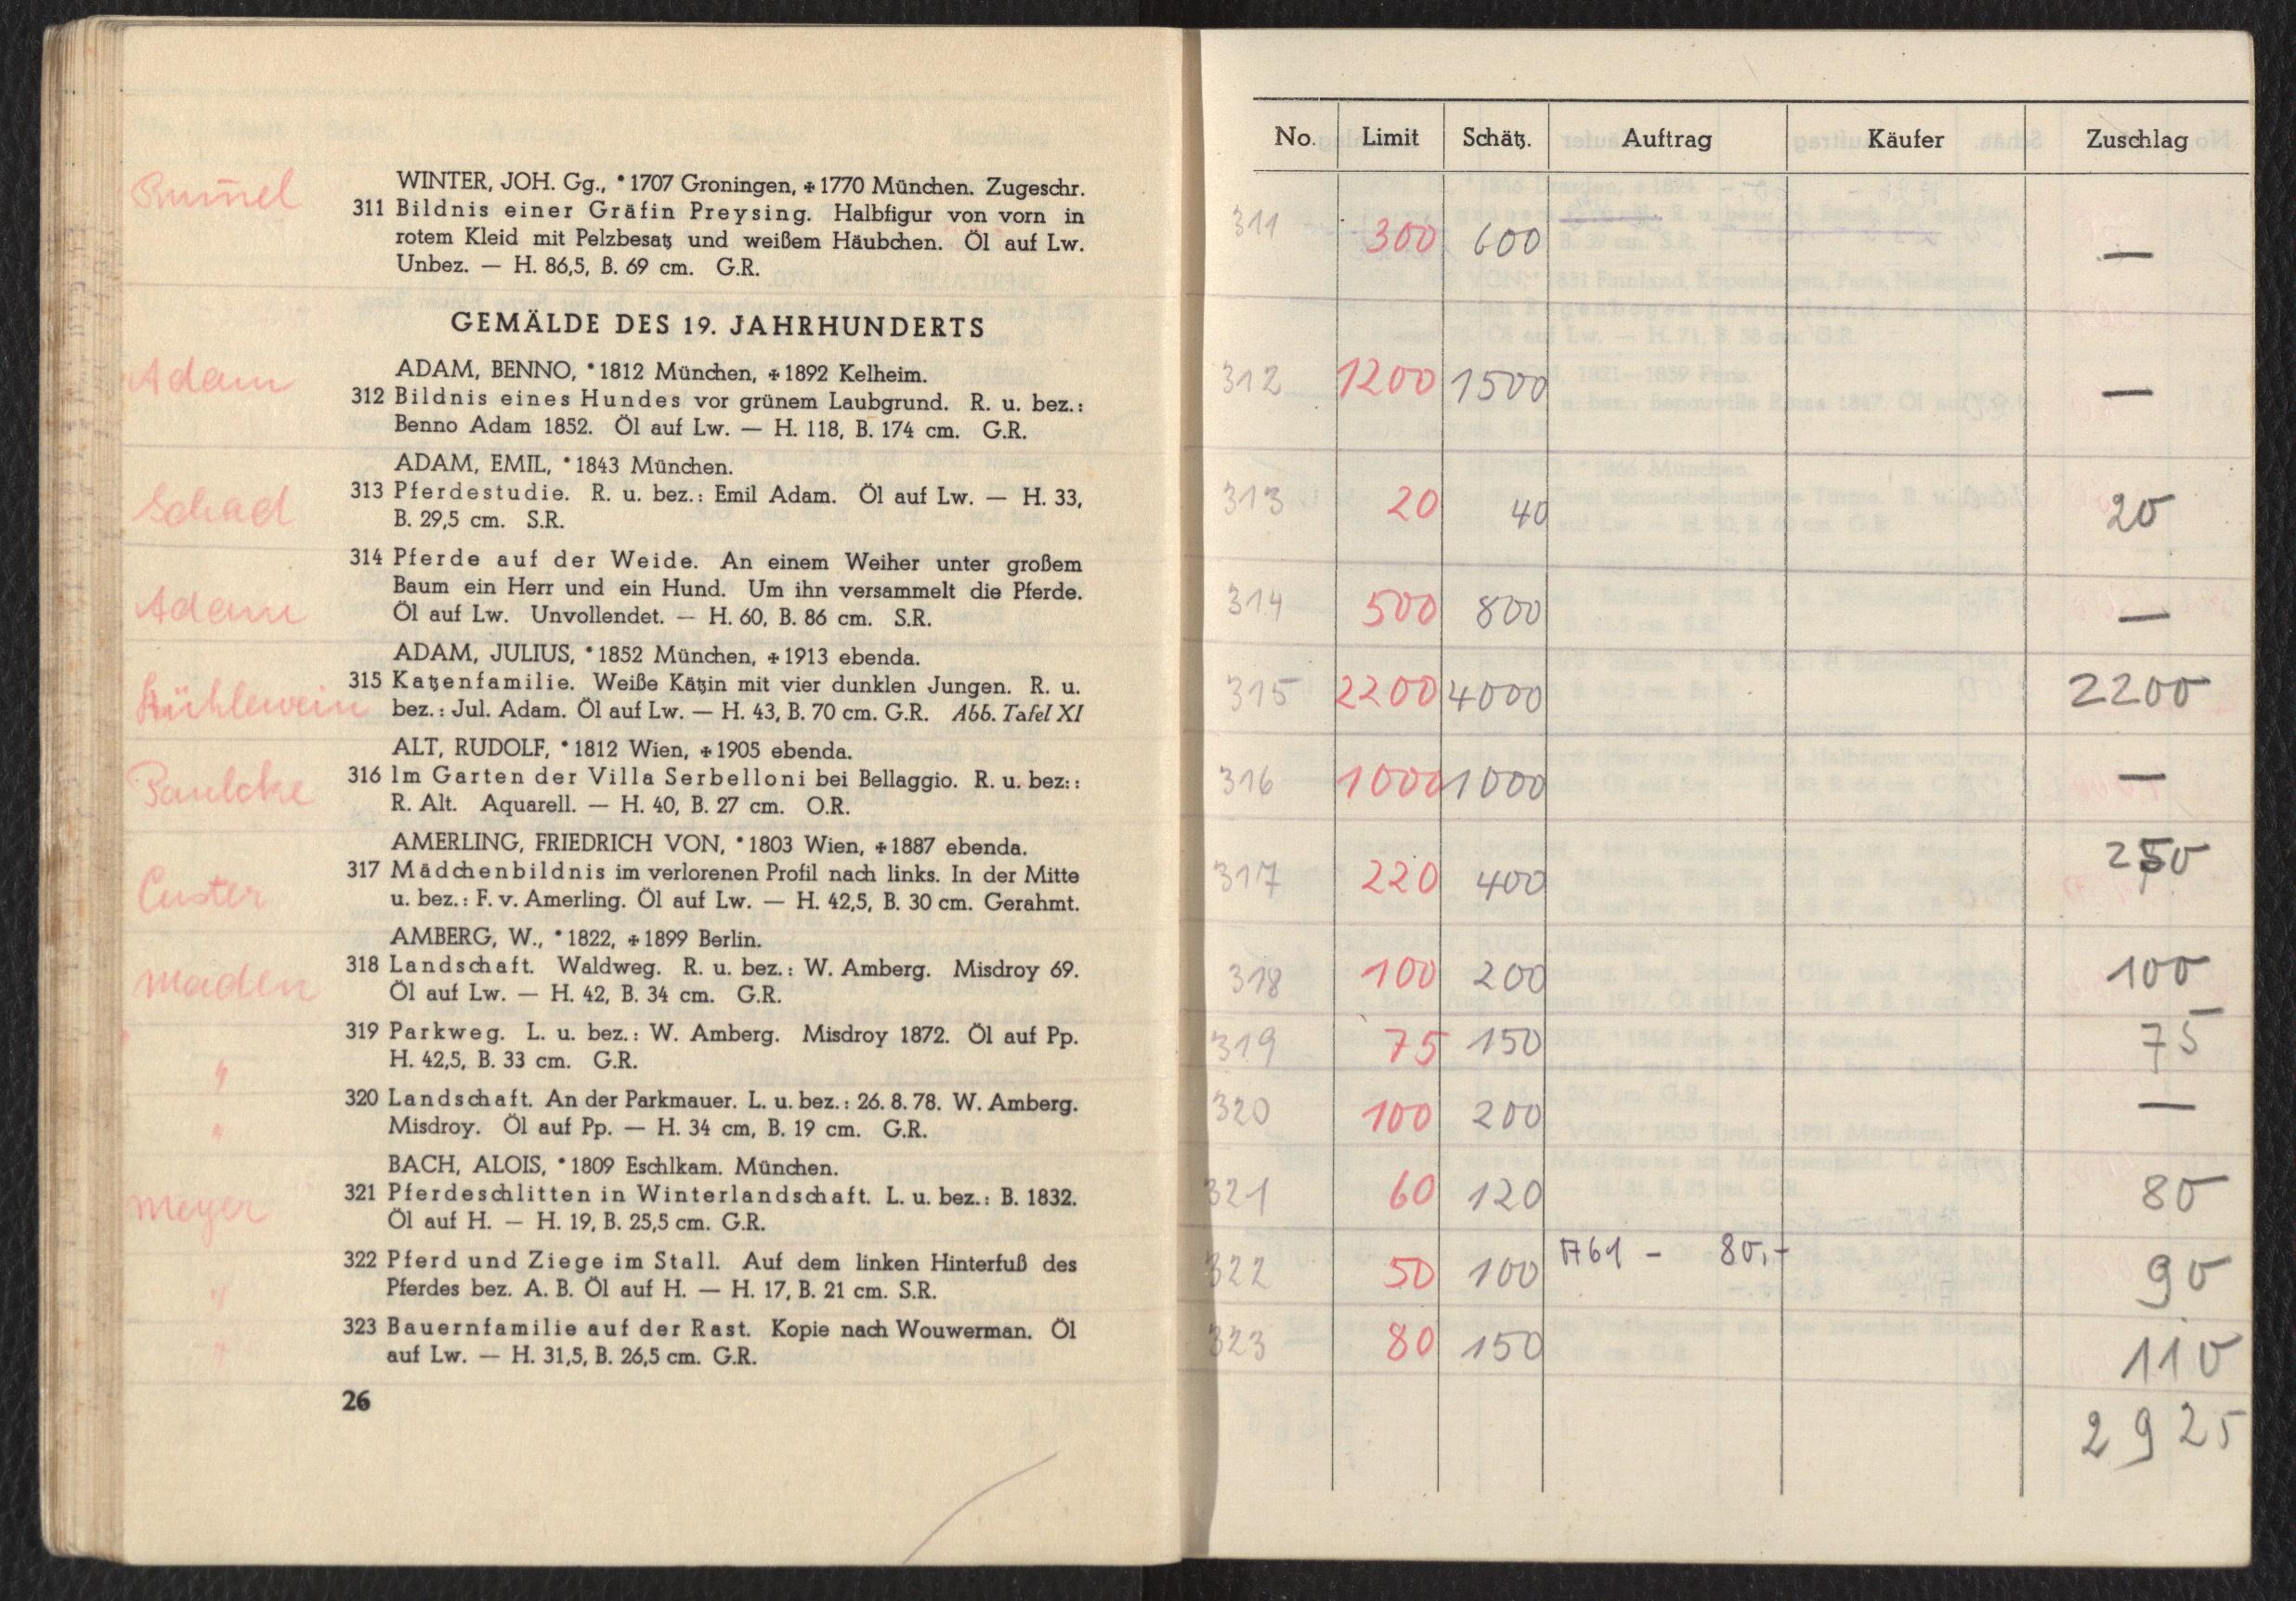 Rum̄el
WINTER, JOH. Gg., *1707 Groningen, ✠1770 München. Zugeschr.
311 Bildnis einer Gräfin Preysing. Halbfigur von vorn in
rotem Kleid mit Pelzbesatz und weißem Häubchen. Öl auf Lw.
Unbez. — H. 86,5, B. 69 cm. G.R.
GEMÄLDE DES 19. JAHRHUNDERTS
Adam
ADAM, BENNO, *1812 München, ✠1892 Kelheim.
312 Bildnis eines Hundes vor grünem Laubgrund. R. u. bez.:
Benno Adam 1852. Öl auf Lw. — H. 118, B. 174 cm. G.R.
ADAM, EMIL, *1843 München.
Schad
313 Pferdestudie. R. u. bez.: Emil Adam. Öl auf Lw. — H. 33,
B. 29,5 cm. S.R.
314 Pferde auf der Weide. An einem Weiher unter großem
Baum ein Herr und ein Hund. Um ihn versammelt die Pferde.
Adam
Öl auf Lw. Unvollendet. — H. 60, B. 86 cm. S.R.
ADAM, JULIUS, *1852 München, ✠1913 ebenda.
315 Katzenfamilie. Weiße Kätzin mit vier dunklen Jungen. R. u.
Kühlewein
bez.: Jul. Adam. Öl auf Lw. — H. 43, B. 70 cm. G.R. Abb. Tafel XI
ALT, RUDOLF, *1812 Wien, ✠1905 ebenda.
316 Im Garten der Villa Serbelloni bei Bellaggio. R. u. bez::
Paulcke
R. Alt. Aquarell. — H. 40, B. 27 cm. O.R.
AMERLING, FRIEDRICH VON, *1803 Wien, ✠1887 ebenda.
317 Mädchenbildnis im verlorenen Profil nach links. In der Mitte
Custer
u. bez.: F. v. Amerling. Öl auf Lw. — H. 42,5, B. 30 cm. Gerahmt.
AMBERG, W., *1822, ✠1899 Berlin.
318 Landschaft. Waldweg. R. u. bez.: W. Amberg. Misdroy 69.
Maden
Öl auf Lw. — H. 42, B. 34 cm. G.R.
319 Parkweg. L. u. bez.: W. Amberg. Misdroy 1872. Öl auf Pp.
H. 42,5, B. 33 cm. G.R.
"
320 Landschaft. An der Parkmauer. L. u. bez.: 26. 8. 78. W. Amberg.
Misdroy. Öl auf Pp. — H. 34 cm, B. 19 cm. G.R.
"
BACH, ALOIS, *1809 Eschlkam. München.
321 Pferdeschlitten in Winterlandschaft. L. u. bez.: B. 1832.
Meyer
Öl auf H. — H. 19, B. 25,5 cm. G.R.
322 Pferd und Ziege im Stall. Auf dem linken Hinterfuß des
Pferdes bez. A. B. Öl auf H. — H. 17, B. 21 cm. S.R.
"
323 Bauernfamilie auf der Rast. Kopie nach Wouwerman. Öl
auf Lw. — H. 31,5, B. 26,5 cm. G.R.
"
26
No. Limit Schätz. Auftrag Käufer Zuschlag
311 300 600 —
312 1200 1500 —
313 20 40 20
314 500 800 —
315 2200 4000 2200
316 1000 1000 —
317 220 400 250
318 100 200 100
319 75 150 75
320 100 200 —
321 60 120 80
322 50 100 A61 - 80,- 90
323 80 150 110
2925